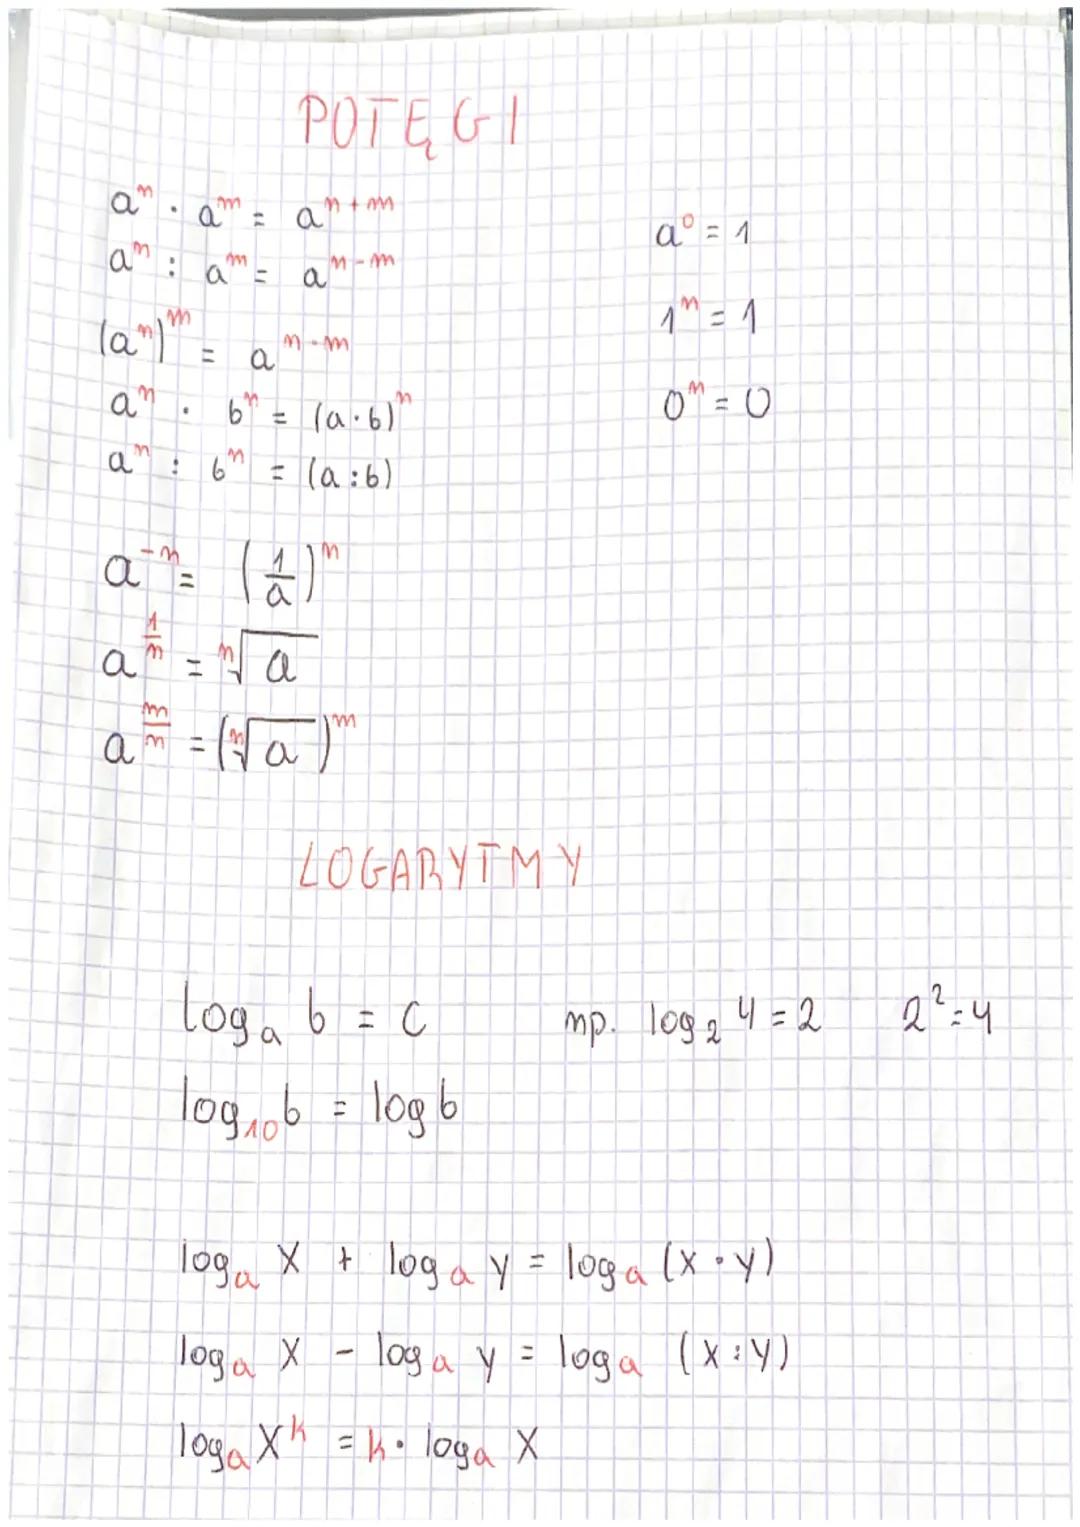 POTĘGI
aⁿ · aᵐ = aⁿ⁺ᵐ
a⁰ = 1
aⁿ : aᵐ = aⁿ⁻ᵐ
1ⁿ = 1
(aⁿ)ᵐ = aⁿ·ᵐ
0ⁿ = 0
aⁿ · bⁿ = (a·b)ⁿ
aⁿ : bⁿ = (a:b)
a⁻ⁿ = (1/a)ⁿ
a^(1/n) = ⁿ√a
a^(m/n) = (ⁿ√a)ᵐ
LOGARYTMY
logₐ b = c np. log₂ 4 = 2 2² = 4
log₁₀ b = log b
logₐ x + logₐ y = logₐ (x · y)
logₐ x - logₐ y = logₐ (x : y)
logₐ xᵏ = k · logₐ x